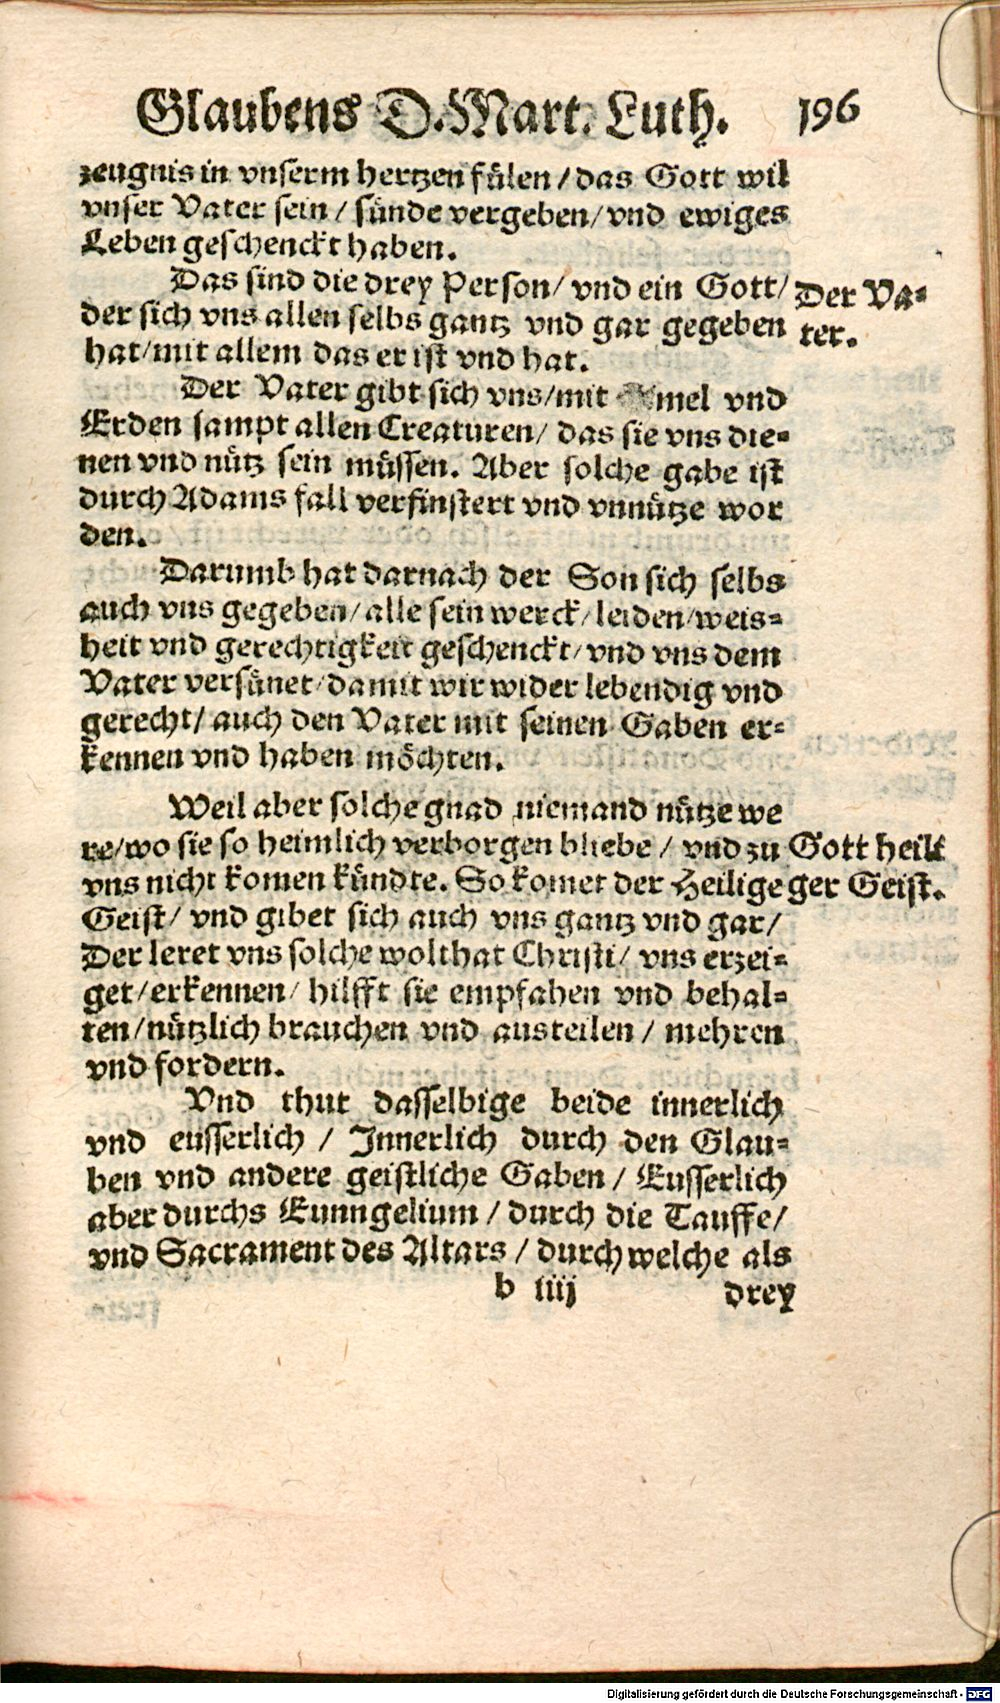 Glaubens D. Mart. Luth. 196
zeugnis in vnserm hertzen fülen / das Gott wil
vnser Vater sein / sünde vergeben / vnd ewiges
Leben geschenckt haben.
Das sind die drey Person / vnd ein Gott /
der sich vns allen selbs gantz vnd gar gegeben
hat / mit allem das er ist vnd hat.
Der Va-
ter.
Der Vater gibt sich vns / mit mel vnd
Erden sampt allen Creaturen / das sie vns die-
nen vnd nütz sein müssen. Aber solche gabe ist
durch Adams fall verfinstert vnd vnnütze wor
den.
Darumb hat darnach der Son sich selbs
auch vns gegeben / alle sein werck / leiden / weis-
heit vnd gerechtigkeit geschenckt / vnd vns dem
Vater versünet / damit wir wider lebendig vnd
gerecht / auch den Vater mit seinen Gaben er-
kennen vnd haben möchten.
Weil aber solche gnad niemand nütze we
re / wo sie so heimlich verborgen bliebe / vnd zu
vns nicht komen kündte. So komet der Heilige
Geist / vnd gibet sich auch vns gantz vnd gar /
Der leret vns solche wolthat Christi / vns erzei-
get / erkennen / hilfft sie empfahen vnd behal-
ten / nützlich brauchen vnd austeilen / mehren
vnd fordern.
Gott heili
ger Geist.
Vnd thut dasselbige beide innerlich
vnd eusserlich / Innerlich durch den Glau-
ben vnd andere geistliche Gaben / Eusserlich
aber durchs Euungelium / durch die Tauffe /
vnd Sacrament des Altars / durch welche als
b iiij drey
Digitalisierung gefördert durch die Deutsche Forschungsgemeinschaft - DFG